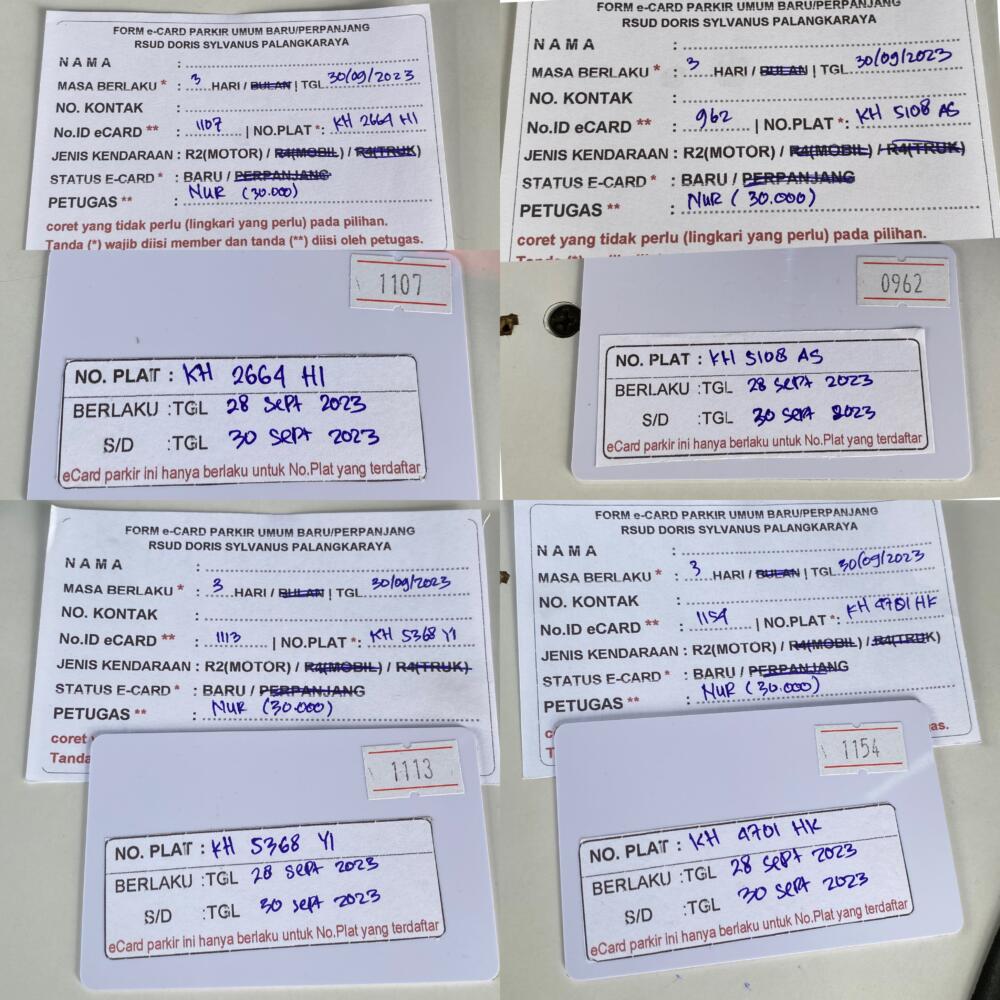 FORM e-CARD PARKIR UMUM BARU/PERPANJANG
RSUD DORIS SYLVANUS PALANGKARAYA
N A M A :
MASA BERLAKU * : 3 HARI / BULAN | TGL 30/09/2023
NO. KONTAK :
No.ID eCARD ** : 1107 | NO.PLAT *: KH 2664 HI
JENIS KENDARAAN : R2(MOTOR) / R4(MOBIL) / R4(TRUK)
STATUS E-CARD * : BARU / PERPANJANG
PETUGAS ** : NUR (30.000)
coret yang tidak perlu (lingkari yang perlu) pada pilihan.
Tanda (*) wajib diisi member dan tanda (**) diisi oleh petugas.
1107
NO. PLAT : KH 2664 HI
BERLAKU :TGL 28 SEPT 2023
S/D :TGL 30 SEPT 2023
eCard parkir ini hanya berlaku untuk No.Plat yang terdaftar
FORM e-CARD PARKIR UMUM BARU/PERPANJANG
RSUD DORIS SYLVANUS PALANGKARAYA
N A M A :
MASA BERLAKU * : 3 HARI / BULAN | TGL 30/09/2023
NO. KONTAK :
No.ID eCARD ** : 962 | NO.PLAT *: KH 5108 AS
JENIS KENDARAAN : R2(MOTOR) / R4(MOBIL) / R4(TRUK)
STATUS E-CARD * : BARU / PERPANJANG
PETUGAS ** : NUR (30.000)
coret yang tidak perlu (lingkari yang perlu) pada pilihan.
0962
NO. PLAT : KH 5108 AS
BERLAKU :TGL 28 SEPT 2023
S/D :TGL 30 SEPT 2023
eCard parkir ini hanya berlaku untuk No.Plat yang terdaftar
FORM e-CARD PARKIR UMUM BARU/PERPANJANG
RSUD DORIS SYLVANUS PALANGKARAYA
N A M A :
MASA BERLAKU * : 3 HARI / BULAN | TGL 30/09/2023
NO. KONTAK :
No.ID eCARD ** : 1113 | NO.PLAT *: KH 5368 YI
JENIS KENDARAAN : R2(MOTOR) / R4(MOBIL) / R4(TRUK)
STATUS E-CARD * : BARU / PERPANJANG
PETUGAS ** : NUR (30.000)
coret
Tanda
1113
NO. PLAT : KH 5368 YI
BERLAKU :TGL 28 SEPT 2023
S/D :TGL 30 SEPT 2023
eCard parkir ini hanya berlaku untuk No.Plat yang terdaftar
FORM e-CARD PARKIR UMUM BARU/PERPANJANG
RSUD DORIS SYLVANUS PALANGKARAYA
N A M A :
MASA BERLAKU * : 3 HARI / BULAN | TGL 30/09/2023
NO. KONTAK :
No.ID eCARD ** : 1154 | NO.PLAT *: KH 4701 HK
JENIS KENDARAAN : R2(MOTOR) / R4(MOBIL) / R4(TRUK)
STATUS E-CARD * : BARU / PERPANJANG
PETUGAS ** : NUR (30.000)
1154
NO. PLAT : KH 4701 HK
BERLAKU :TGL 28 SEPT 2023
S/D :TGL 30 SEPT 2023
eCard parkir ini hanya berlaku untuk No.Plat yang terdaftar